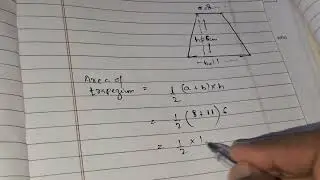 a=8cm
h=6cm
b=11
Area of
trapezium = 1/2 (a+b)×h
= 1/2 (8+11) 6
= 1/2 × 1